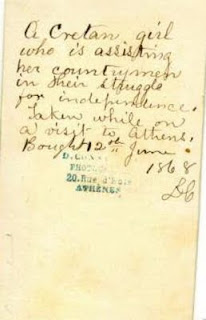 A Cretan girl
who is assisting
her countrymen
in their struggle
for independence.
Taken while on
a visit to Athens.
Bought 12th June
1868
D. CON
PHOTOG
20. Rue d'
ATHÈNES